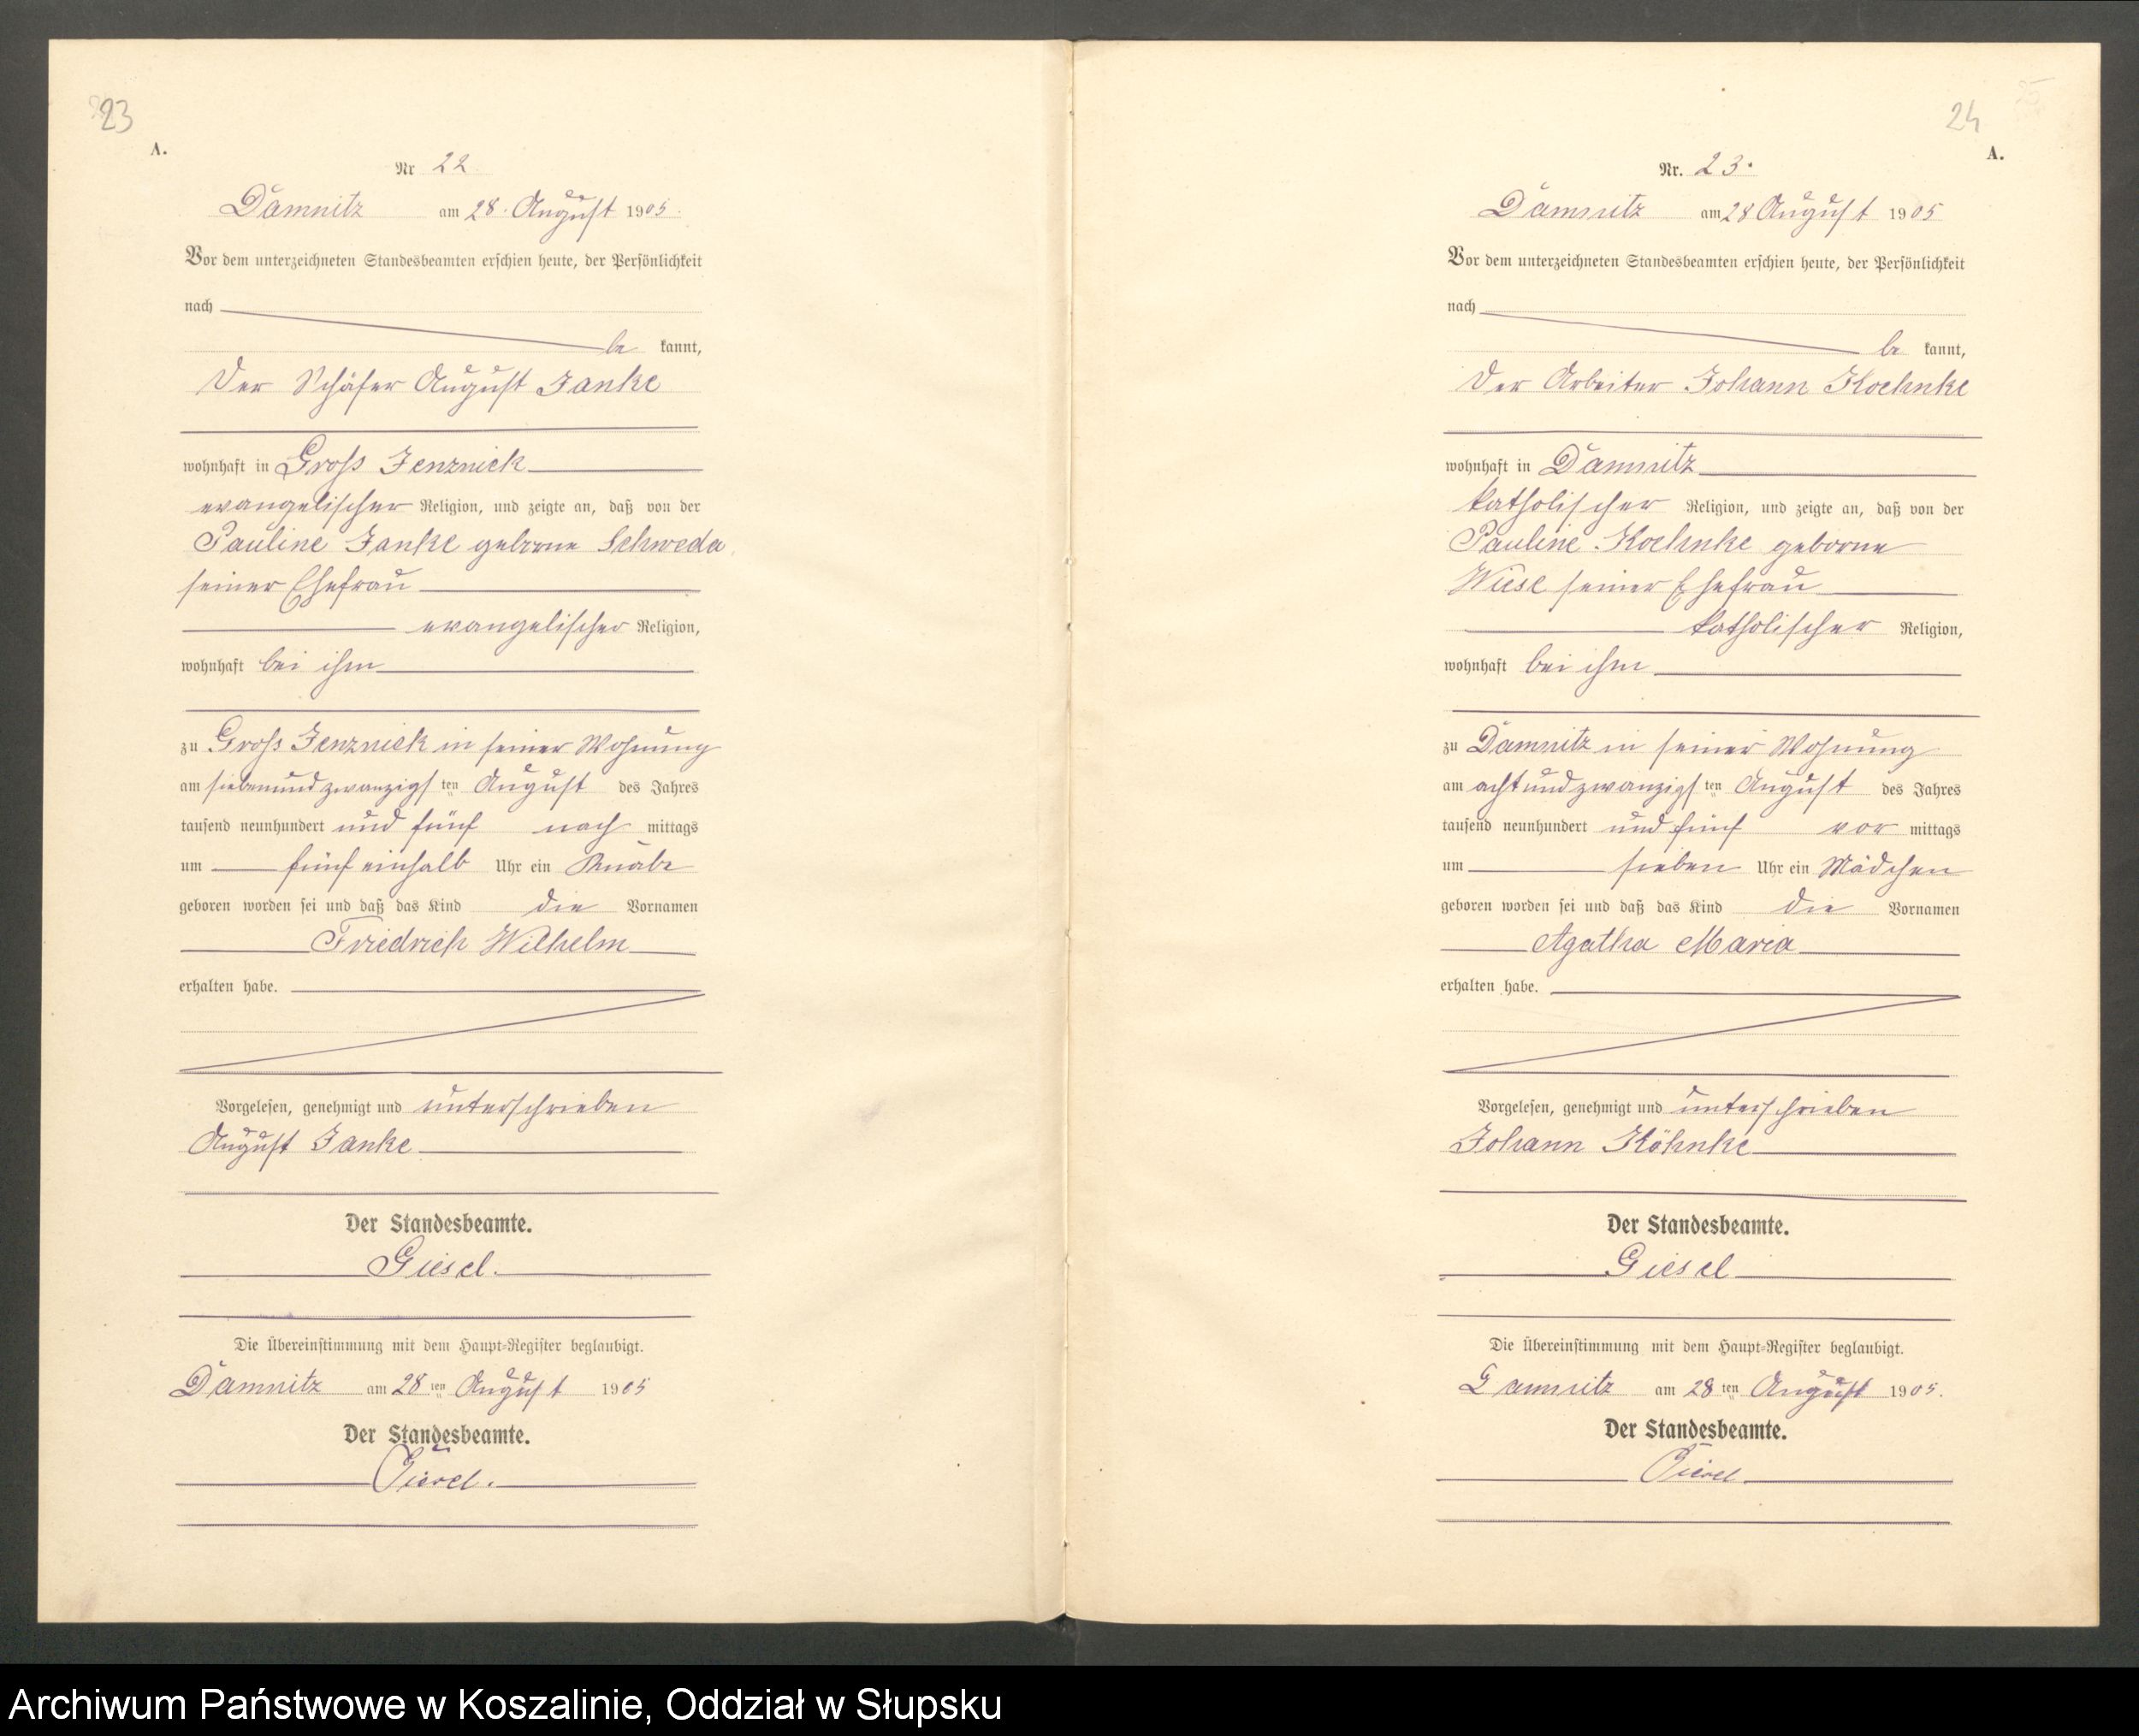 23
A.
Nr 22
Damnitz am 28. August 1905.
Vor dem unterzeichneten Standesbeamten erschien heute, der Persönlichkeit
nach
be kannt,
der Schäfer August Janke
wohnhaft in Gross Jenznick
evangelischer Religion, und zeigte an, daß von der
Pauline Janke geborne Schweda,
seiner Ehefrau
evangelischer Religion,
wohnhaft bei ihm
zu Gross Jenznick in seiner Wohnung
am siebenundzwanzigs ten August des Jahres
tausend neunhundert und fünf nach mittags
um fünf einhalb Uhr ein Knabe
geboren worden sei und daß das Kind die Vornamen
Friedrich Wilhelm
erhalten habe.
Vorgelesen, genehmigt und unterschrieben
August Janke
Der Standesbeamte.
Giesel.
Die Übereinstimmung mit dem Haupt-Register beglaubigt.
Damnitz am 28 ten August 1905
Der Standesbeamte.
Giesel.
24
A.
Nr. 23.
Damnitz am 28 August 1905
Vor dem unterzeichneten Standesbeamten erschien heute, der Persönlichkeit
nach
be kannt,
der Arbeiter Johann Koehnke
wohnhaft in Damnitz
katholischer Religion, und zeigte an, daß von der
Pauline Koehnke geborne
Wiese seiner Ehefrau
katholischer Religion,
wohnhaft bei ihm
zu Damnitz in seiner Wohnung
am achtundzwanzigs ten August des Jahres
tausend neunhundert und fünf vor mittags
um sieben Uhr ein Mädchen
geboren worden sei und daß das Kind die Vornamen
Agatha Maria
erhalten habe.
Vorgelesen, genehmigt und unterschrieben
Johann Köhnke
Der Standesbeamte.
Giesel
Die Übereinstimmung mit dem Haupt-Register beglaubigt.
Damnitz am 28 ten August 1905.
Der Standesbeamte.
Giesel
Archiwum Państwowe w Koszalinie, Oddział w Słupsku